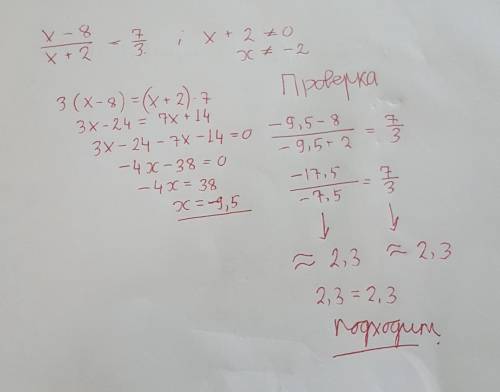 x - 8 / x + 2 = 7 / 3 ; x + 2 ≠ 0
x ≠ -2
3(x-8)=(x+2)·7
3x-24 = 7x+14
3x-24-7x-14=0
-4x-38=0
-4x=38
x=-9,5
Проверка
-9,5-8 / -9,5+2 = 7 / 3
-17,5 / -7,5 = 7 / 3
≈ 2,3 ≈ 2,3
2,3 = 2,3
подходит.